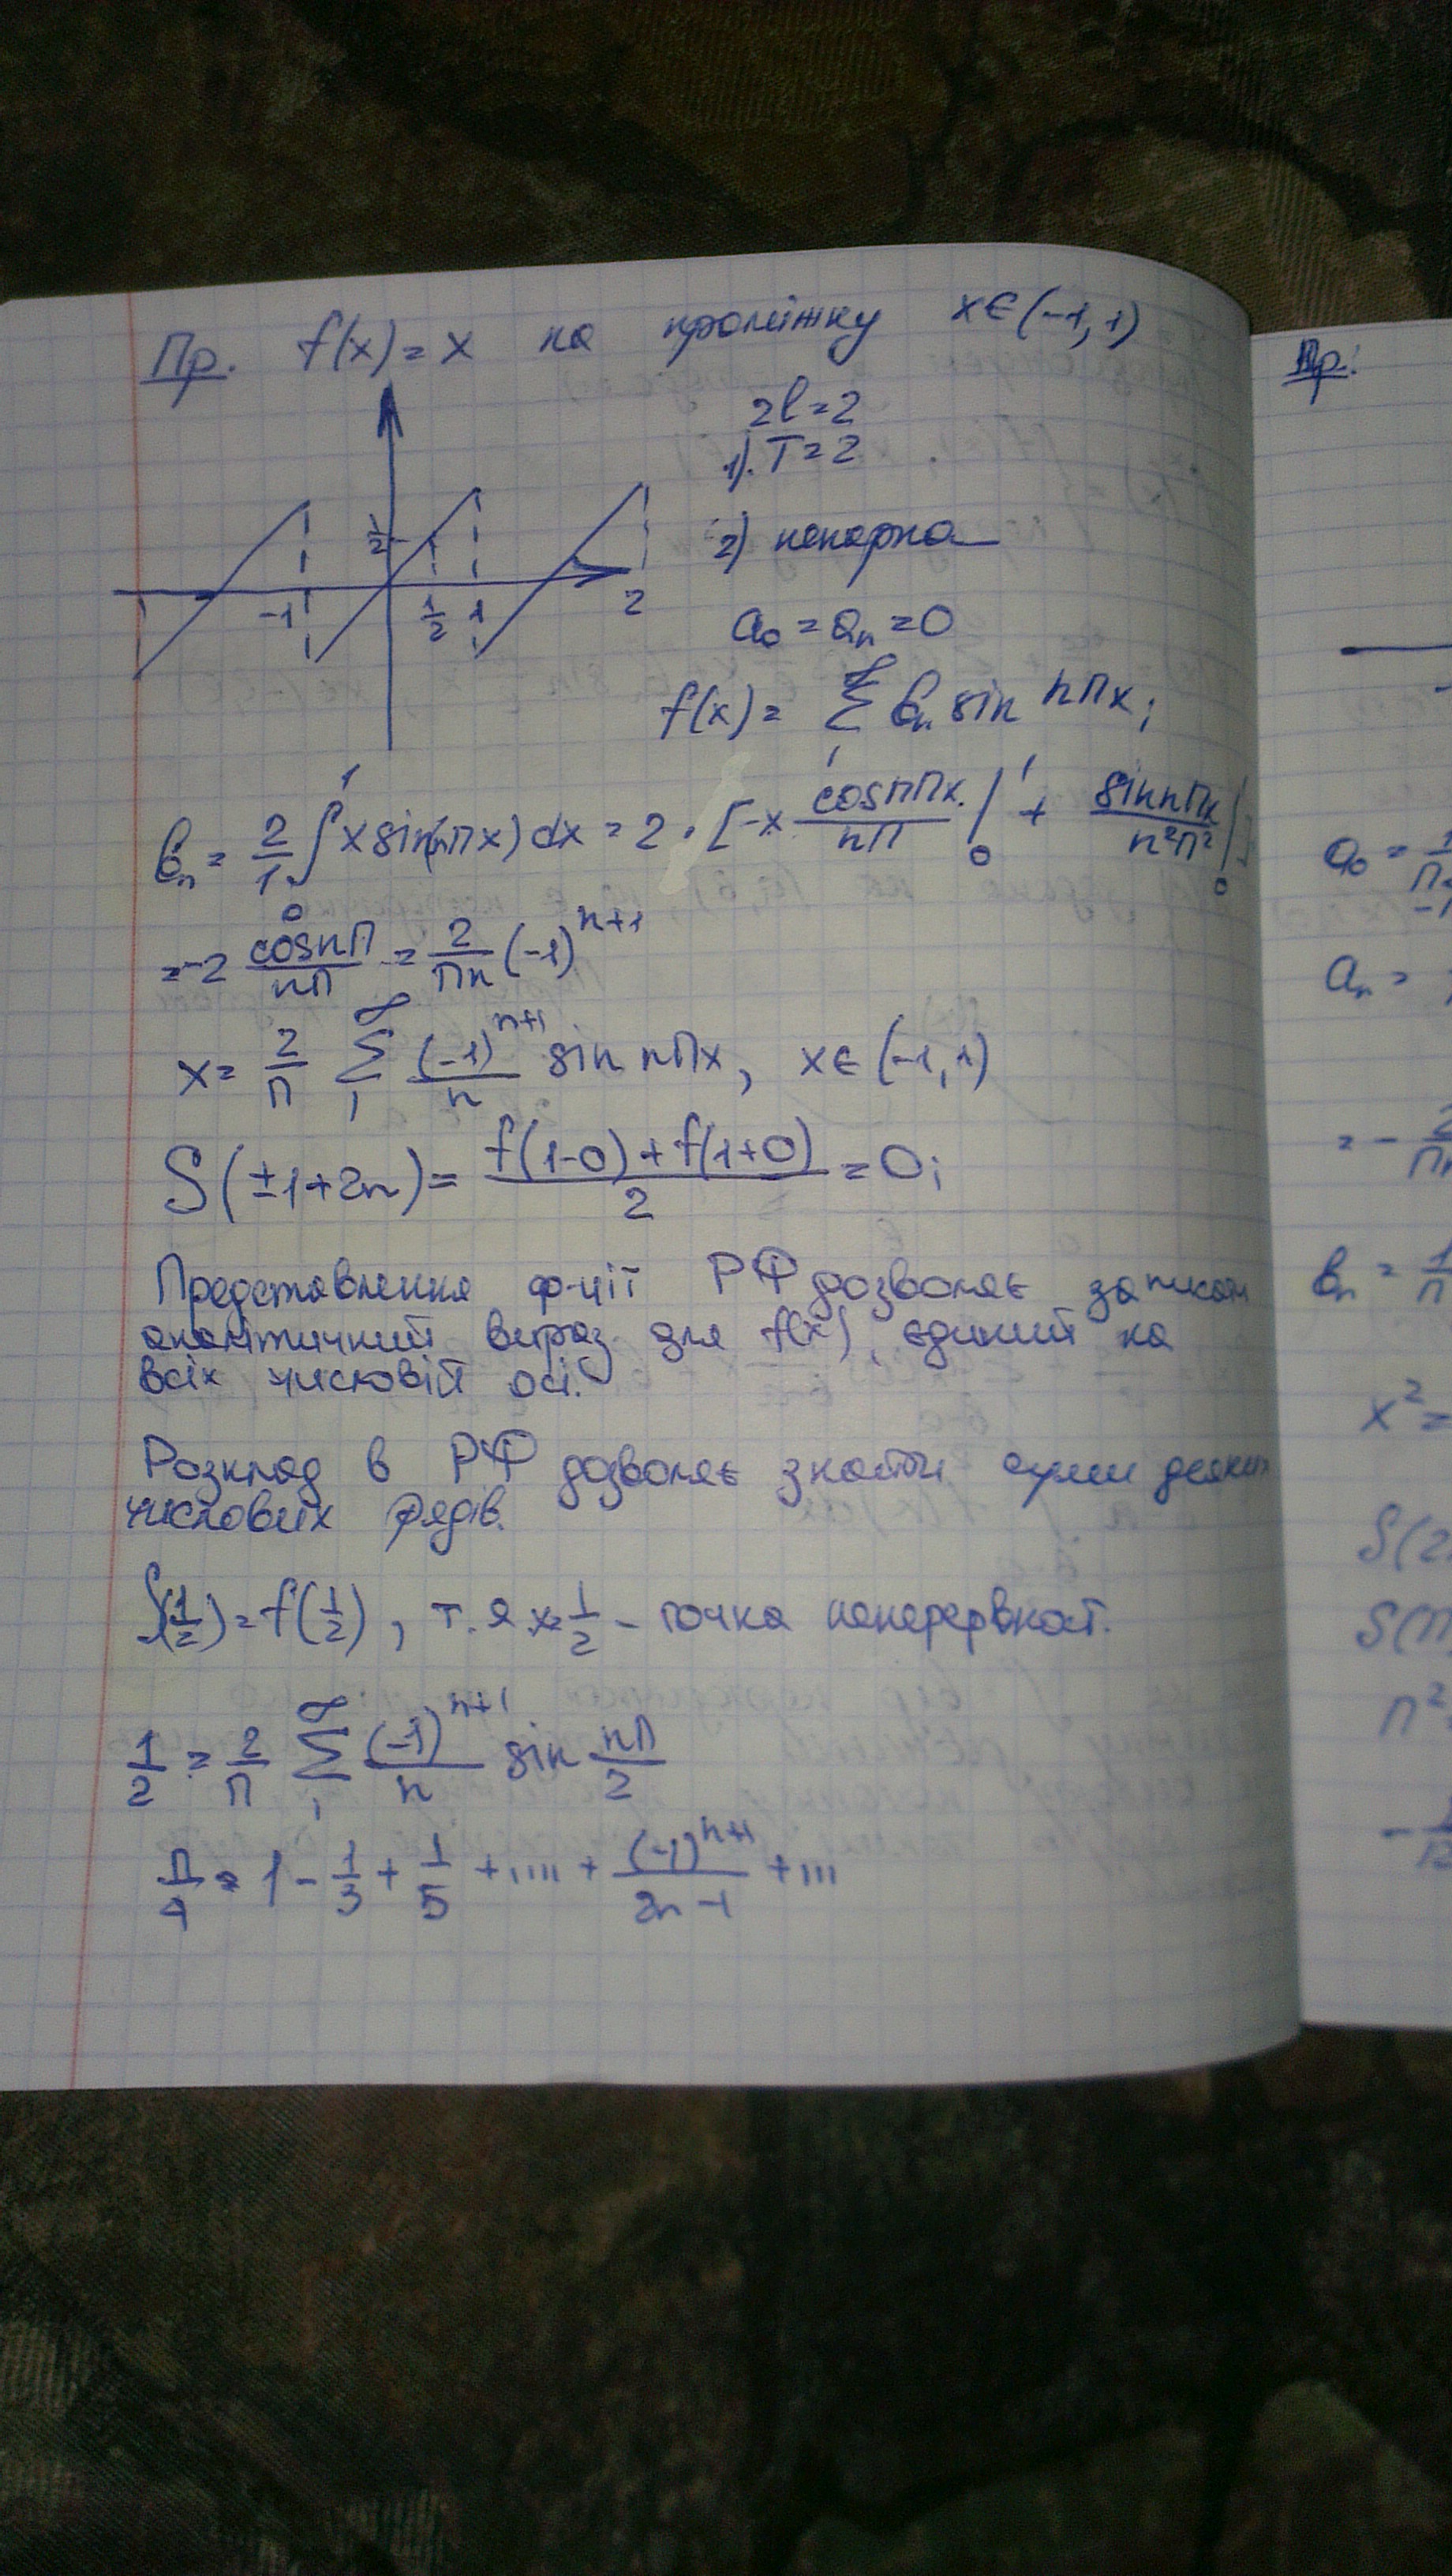 Пр. f(x) = x на проміжку x ∈ (-1, 1)
2l = 2
1). T = 2
2) непарна
a₀ = aₙ = 0
1/2
-1 1/2 1 2
f(x) = ∑₁^∞ bₙ sin nπx;
bₙ = 2/1 ∫₀¹ x sin(nπx) dx = 2 · [-x cos nπx/nπ |₀¹ + sin nπx/n²π² |₀¹]
= -2 cos nπ/nπ = 2/πn (-1)ⁿ⁺¹
x = 2/π ∑₁^∞ (-1)ⁿ⁺¹/n sin nπx, x ∈ (-1, 1)
S(±1+2n) = f(1-0) + f(1+0)/2 = 0;
Представлення ф-ції РФ дозволяє записати
аналітичний вираз для f(x), єдиний на
всіх числовій осі.
Розклад в РФ дозволяє знайти суми деяких
числових рядів.
S(1/2) = f(1/2), т. я x = 1/2 - точка неперервност.
1/2 = 2/π ∑₁^∞ (-1)ⁿ⁺¹/n sin nπ/2
π/4 = 1 - 1/3 + 1/5 + .... + (-1)ⁿ⁺¹/2n-1 + ...
Пр:
a₀ = 1/π
-π
aₙ =
= - 2/πn
bₙ = 1/π
x² =
S(2
S(π
π²